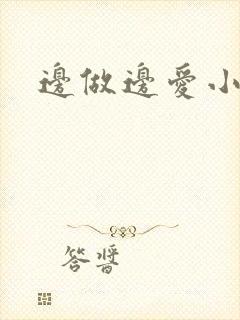 邊做邊愛小
答醬